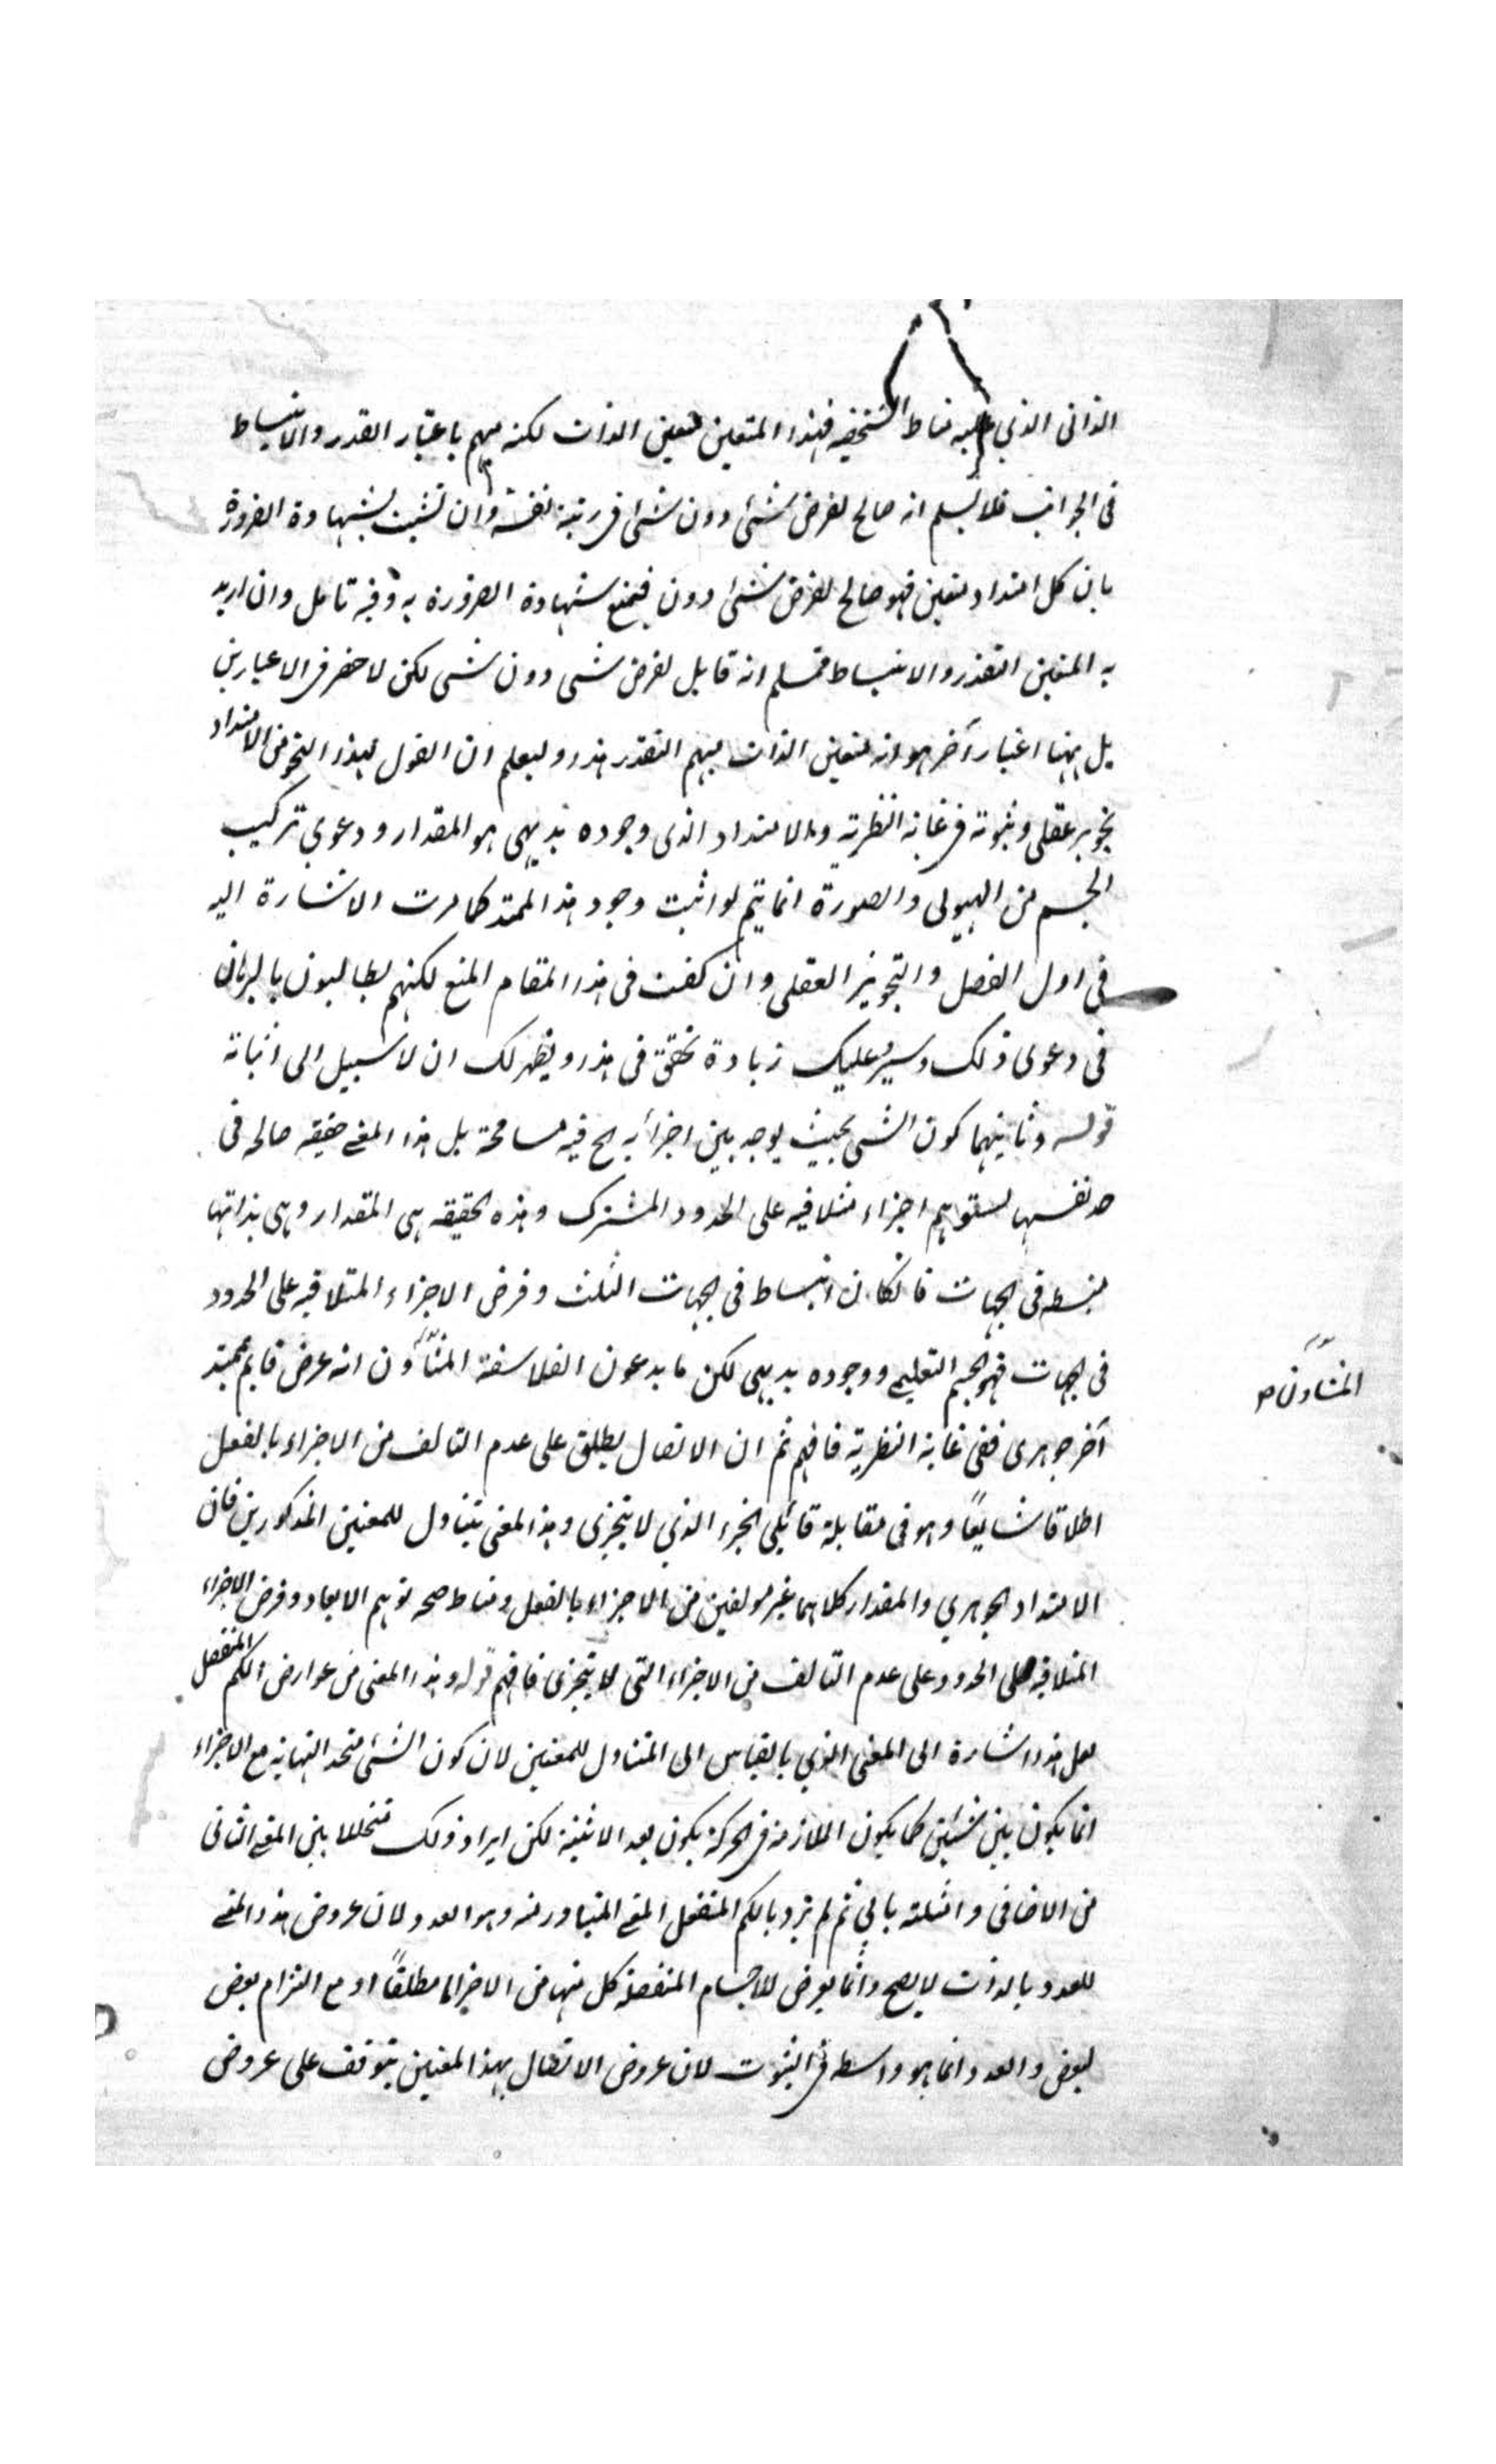 الذاتى الذي عليه مناط الشخصية فهذا المتعين متعين الذات لكنه مبهم باعتبار القدر والانبساط
فى الجوانب فلا نسلم انه صالح لفرض شئ دون شئ فى رتبة نفسه وان تشبث بشهادة الضرورة
بان كل امتداد متعين فهو صالح لفرض شئ دون فيمنع شهادة الضرورة به وفيه تامل وان اريد
به المتعين التقدر والانبساط فمسلم انه قابل لفرض شى دون شى لكن لا حصر فى الاعتبارين
بل ههنا اعتبار آخر هو انه متعين الذات مبهم التقدر هذا وليعلم ان القول بهذا النحو من الامتداد
تجويز عقلى وثبوته فى غاية النظرية والامتداد الذى وجوده بديهى هو المقدار ودعوى تركيب
الجسم من الهيولى والصورة انما يتم لو اثبت وجود هذا الممتد كما مرت الاشارة اليه
فى اول الفصل والتجويز العقلى وان كفت فى هذا المقام المنع لكنهم يطالبون بالبرهان
فى دعوى ذلك وسيمر عليك زيادة تحقق فى هذا ويظهر لك ان لا سبيل الى اثباته
قوله وثانيهما كون الشى بحيث يوجد بين اجزائه الخ فيه مسامحة بل هذا المعنى حقيقه صالحه فى
حد نفسها لستوهم اجزاء متلاقيه على الحدود المشترك وهذه الحقيقه هى المقدار وهى بذاتها
منبسطه فى الجهات فانكان انبساط فى الجهات الثلث وفرض الاجزاء المتلاقيه على الحدود
فى الجهات فهو الجسم التعليمى ووجوده بديهى لكن ما يدعون الفلاسفة المشاؤن انه عرض قايم بممتد
المشاؤن ص
آخر جوهرى ففى غاية النظرية فافهم ثم ان الاتصال يطلق على عدم التالف من الاجزاء بالفعل
اطلاقا شايعًا وهو فى مقابلة قائلى الجزء الذي لا يتجزى وهذا المعنى يتناول للمعنيين المذكورين فان
الامتداد الجوهري والمقدار كلاهما غير مولفين من الاجزاء بالفعل ومناط صحه توهم الابعاد وفرض الاجزاء
المتلاقيه على الحدود على عدم التالف من الاجزاء التى لا يتجزى فافهم قوله وهذا المعنى من عوارض الكم المنفصل
لعل هذا اشارة الى المعنى الذي بالقياس الى المتناول للمعنيين لان كون الشئ متحد النهاية مع الاجزاء
انما يكون بين شئين كما يكون الملازمة فى الحركة يكون بعد الاثنينة لكن ايراد ذلك متخللا بين المعنى الثانى
من الاضافى وامثلته يابى ثم لم يرد بالكم المنفصل المعنى المتبادر منه وهو العدد لان عروض هذا المعنى
للعدد بالذات لا يصح وانما يعرض للاجسام المنفصلة كل منها من الاخر اما مطلقاً او مع التزام بعض
لبعض والعدد انما هو واسطه فى الثبوت لان عروض الاتصال بهذا المعنيين يتوقف على عروض